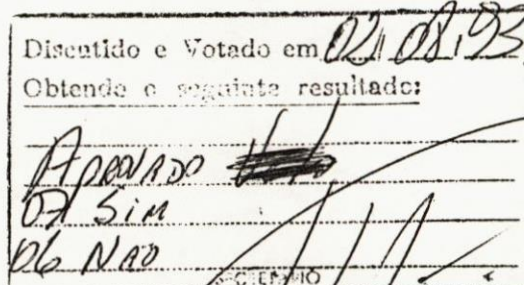 Discutido e Votado em 02/08/93
Obtendo o seguinte resultado:
APROVADO
07 Sim
06 NAO
SECRETARIO